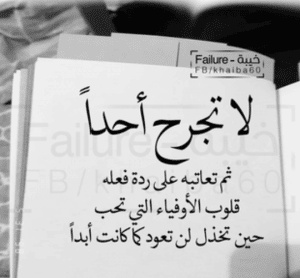 خيبة - Failure
FB/khaiba60
لا تجرح أحداً
خيبة - Failure
FB/khaiba60
ثم تعاتبه على ردة فعله
قلوب الأوفياء التي تحب
حين تخذل لن تعود كما كانت أبداً